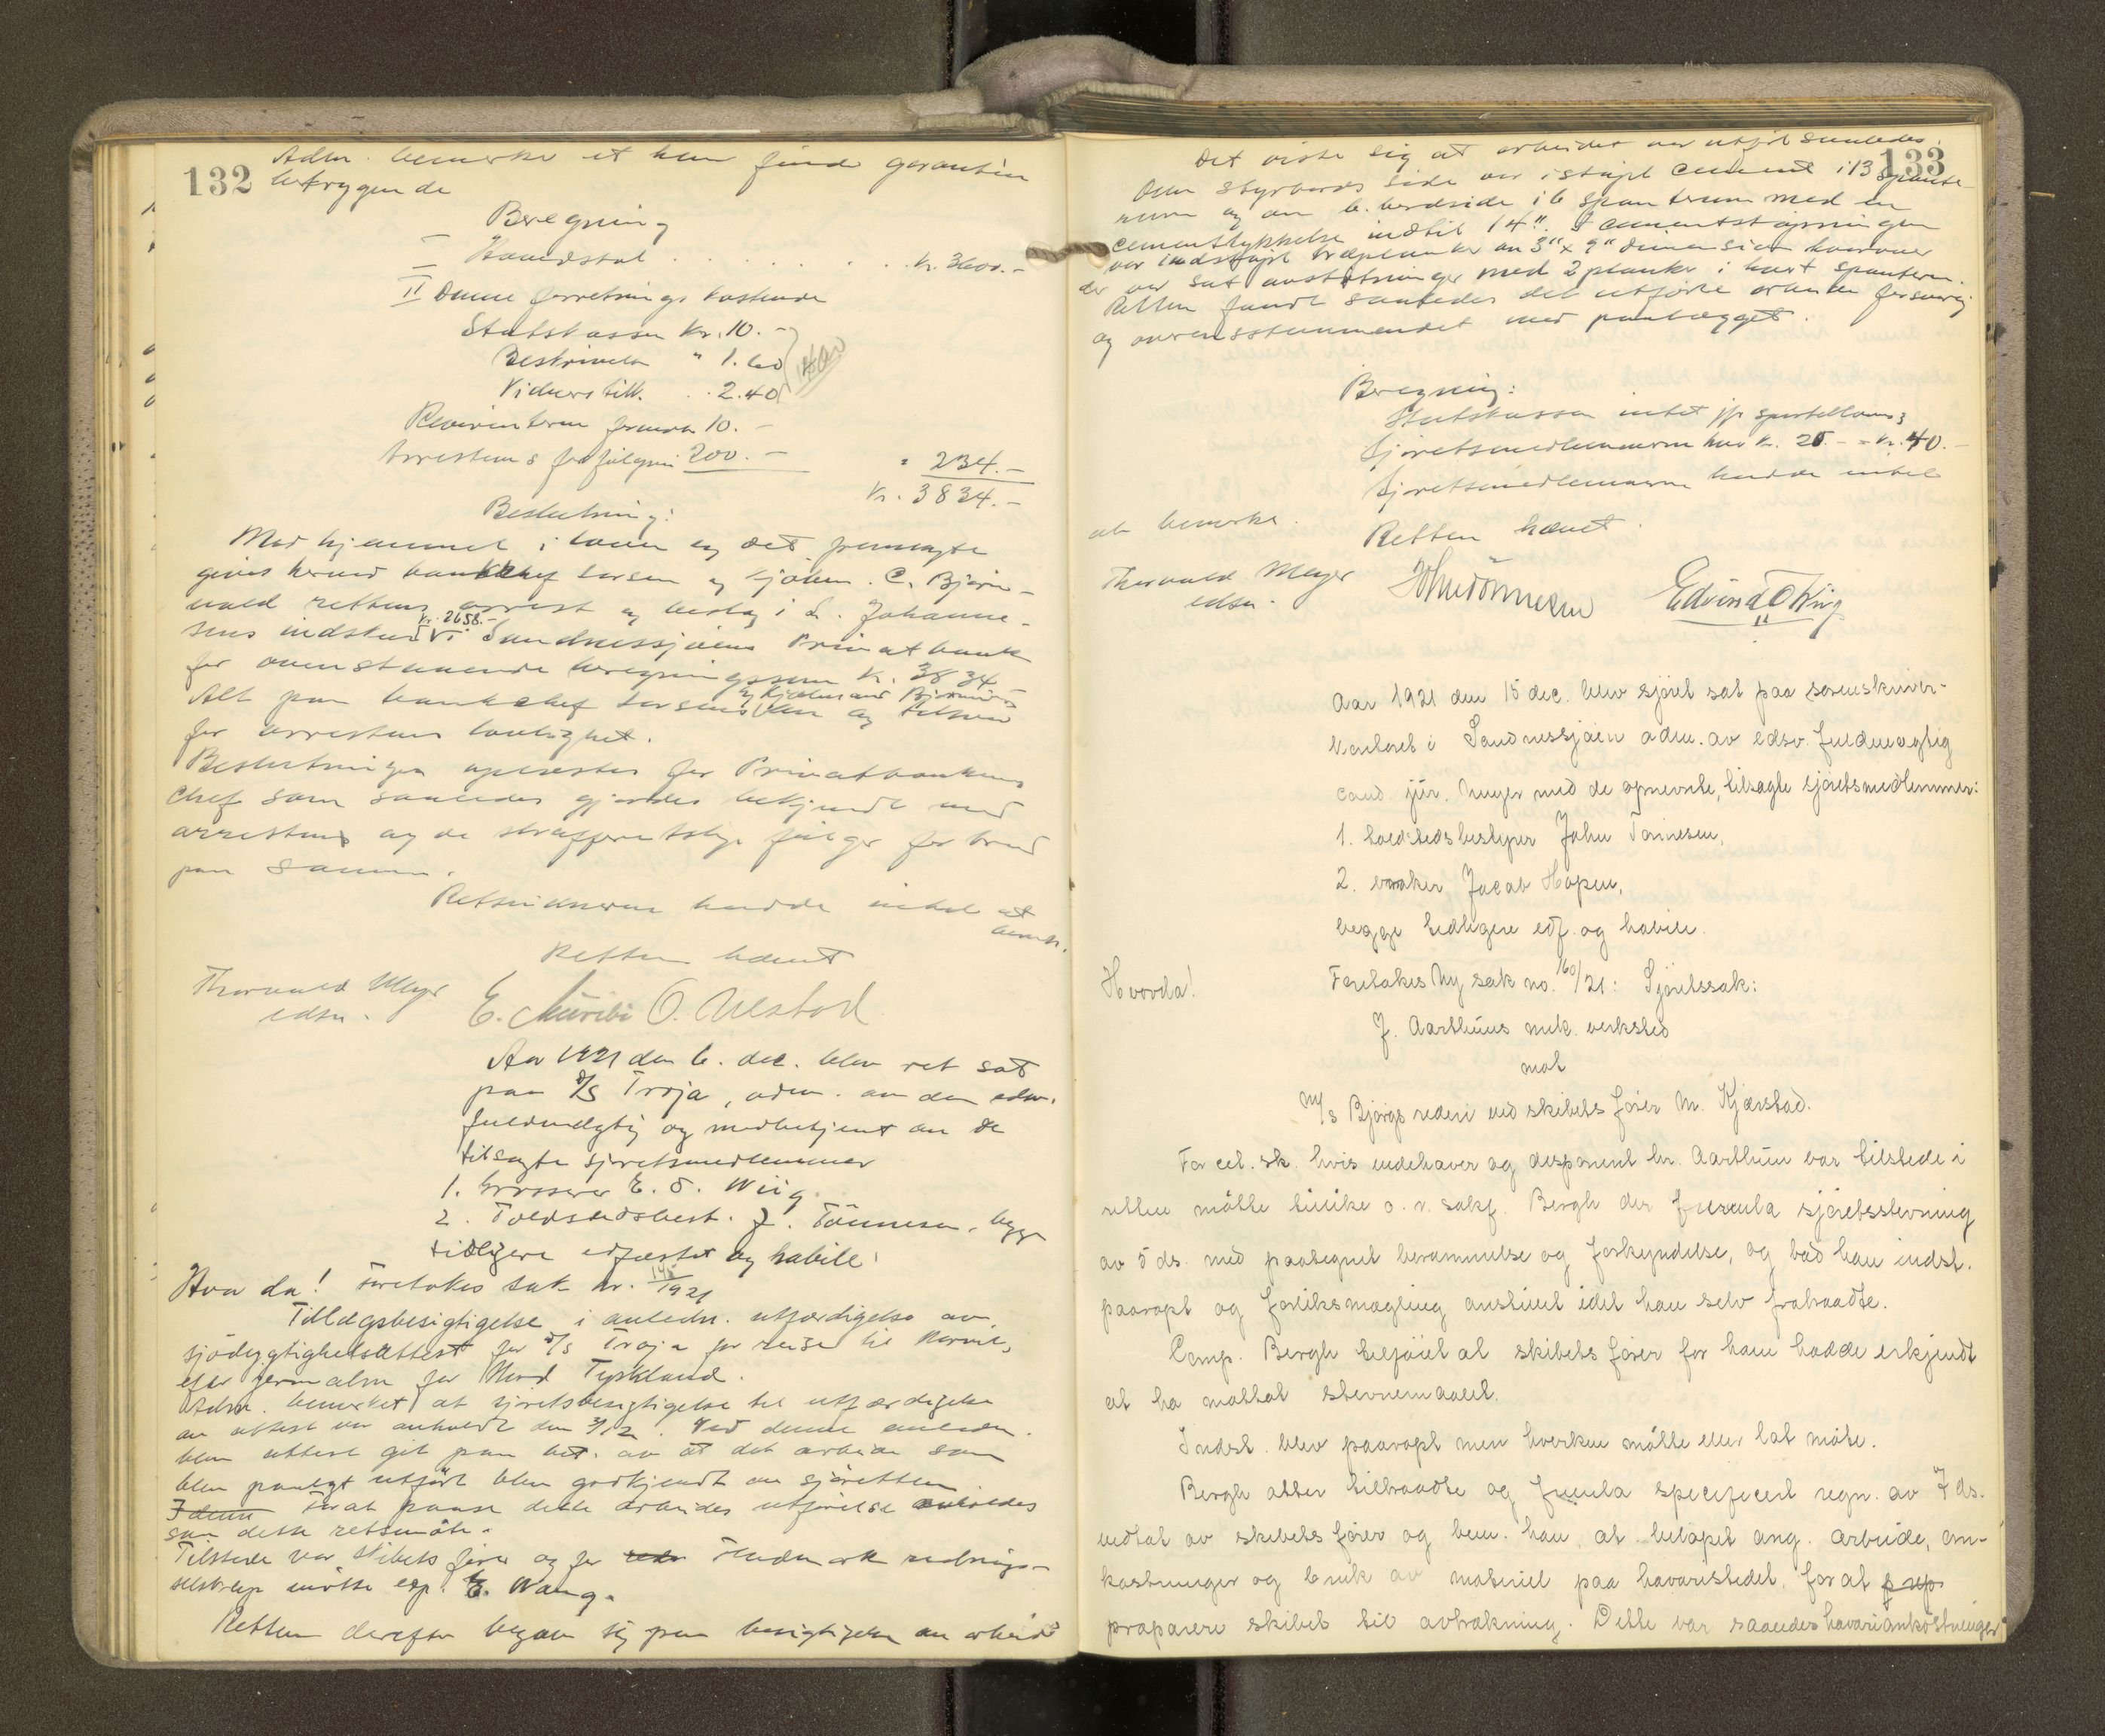 132
Adm. bemerke at han finde garantien
betryggende
Beregning
I Hovedstol . . . . . . kr. 3600.-
II Denne forretnings kostende
Statskassen kr. 10.-
Beskrivelse " 1.60
Vidners till. . . 2.40
14.00
Rekvirenterne formeen 10.-
Arrestens forfølgni 200.-
" 234.-
Kr. 3834.-
Beslutning:
Med hjemmel i loven og det fremlagte
gives herved bankchef Larsen og kjøbm. C. Bjørn-
vald rettens arrest og beslag i L. Johanne-
sens indskud kr. 2658.- i Sandnessjøens Privatbank
for ovenstaaende beregningssum kr. 3834
Alt paa bankchef Larsens og Kjøbmand Bjørnvalds
for arrestens lovlighet.
Beslutningen oplæstes for Privatbankens
chef som saaledes gjordes bekjendt med
arresten og de strafferetslige følger for brud
paa samme.
Retsvidnerne hadde intet at
bemerk.
Retten hævet
Thorvald Meyer
edsv.
O. Ulstad
Aar 1921 den 6. dec. blev ret sat
paa D/S Troja, adm. av den edsv.
fuldmægtig og medbetjent av de
tilsagte sjøretsmedlemmer
1. Grosserer E. O. Wiig
2. Toldstedsbest. J. Tønnesen, begge
tidligere edfæstet og habile.
Hvor da! Foretokes sak nr. /1921
Tillægsbesigtigelse i anledn. utfærdigelse av
sjødygtighetsattest for D/S Troja for reise til Narvik,
efter jernmalm for Nord Tyskland.
Adm. bemerket at sjøretsbesigtigelse til utfærdigelse
av attest var anholdt den 3/12. Ved denne anledn.
blev attest git paa bet. av at det arbeide som
blev paalagt utført blev godkjendt av sjøretten
For at paase dette arbeides utførelse anholdes
saa dette retsmøte.
Tilstede var skibets fører og for Hedmark rednings-
selskap møtte exp. E. Wang.
Retten derefter begav sig paa besigtigelse av arbeidet
133
Det viste sig at arbeidet var utført saaledes:
Den styrbords side var istøpt cement i 13 spante-
rum og av b.bordside i 6 spanterum med en
cementtykkelse indtil 14". I cementstøpningen
var indstøpt træplanker av 3" x 9" dimension hvorover
der var sat avstøtninger med 2 planker i hvert spanterum.
Retten fandt saaledes det utførte arbeide forsvarlig
og overensstemmendet med paalægget.
Beregning:
Statskassen intet jfr sportelloven;
Sjøretsmedlemmerne hver kr. 20.- = kr. 40.-
Sjøretsmedlemmerne hadde intet
at bemerke.
Retten hævet.
Thorvald Meyer
edsv.
John Tønnesen
Edvind O Wiig
Aar 1921 den 15 dec. blev sjøret sat paa sorenskriver-
kontoret i Sandnessjøen adm. av edsv. fuldmægtig
cand jur. Meyer med de opnevnte, tilsagte sjøretsmedlemmer:
1. toldstedsbestyrer John Tønnesen,
2. vraker Jacob Hopen,
begge tidligere edf. og habile.
Hvorda!
Foretokes Ny sak no. 160/21: Sjøretssak:
J. Aarthuns mek. verksted
mot
M/s Bjørgs rederi ved skibets fører M. Kjærstad.
For cit. sk. hvis indehaver og disponent hr. Aarthun var tilstede i
retten møtte tillike o. r. sakf. Bergh der fremla sjøretsstevning
av 5 ds. med paategnet berammelse og forkyndelse, og bad han indst.
paaropt og forliksmægling anstillet idet han selv fratraadte.
Comp. Bergh tilføiet at skibets fører for ham hadde erkjendt
at ha mottat stevnemaalet.
Indst. blev paaropt men hverken møtte eller lot møte.
Bergh atter tiltraadte og fremla specificert regn. av 7 ds.
vedtat av skibets fører og bem. han at beløpet ang. arbeide, om-
kostninger og bruk av materiel paa havaristedet, for at p rep
præparere skibet til avtrækning. Dette var saaledes havariomkostninger